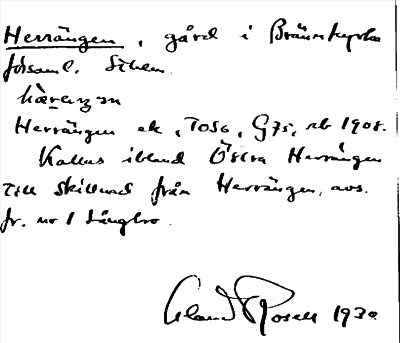 Herrängen, gård i Brännkyrka
församl. Sthlm.
hæ̀raŋən
Herrängen ek, Toso, G75, rb 1908.
Kallas ibland Östra Herrängen
till skillnad från Herrängen, avs.
fr. nr 1 Långbro.
Roséll 1930